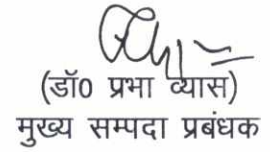 (डॉ0 प्रभा व्यास)
मुख्य सम्पदा प्रबंधक